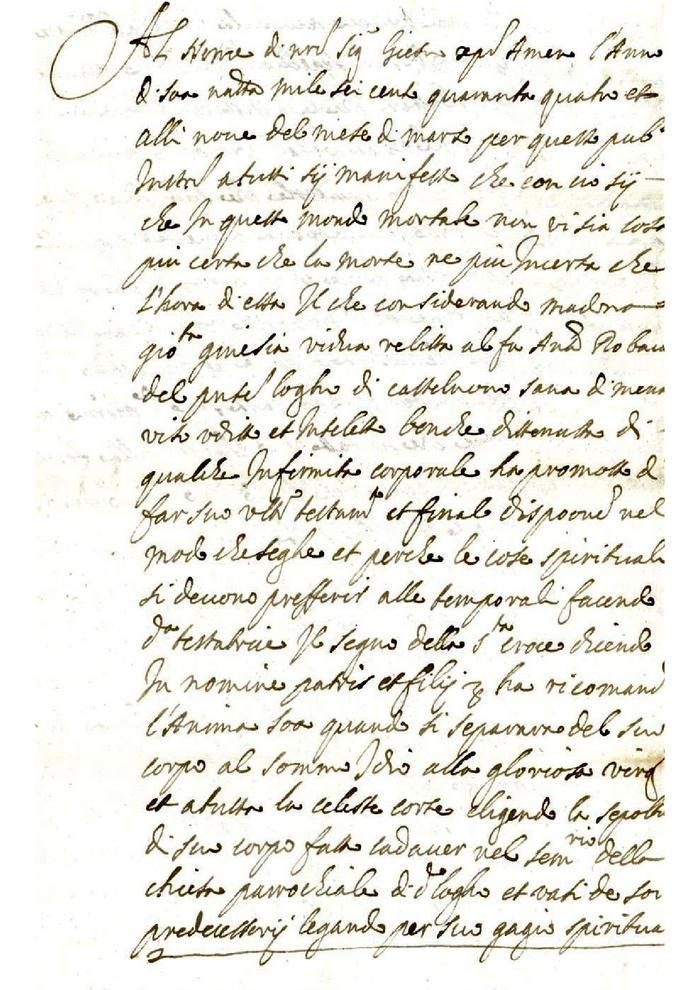 Al Nome di nro Sigr Giesu xpo Amen l'Anno
di soa natta mile sei cento quaranta quatro et
alli noue del mese di marzo per questo pubco
Instrto a tutti sij manifesto che con cio sij
che In questo mondo mortale non vi sia cosa
piu certa che la morte ne piu Incerta che
l'hora di essa Il che considerando madona
giota ginesia vidua relitta al fu Andrea
del pnte logho di castelnouo sana di mente
visto vditto et Inteletto benche dittenutta di
qualche Infirmita corporale ha promosso di
far suo vltimo testamto et final dispone nel
modo che seghe et perche le cose spirituali
si deuono prefferir alle temporali facendo
da testatrice Il segno della sta croce dicendo
In nomine patris et filij ha ricomando
l'Anima soa quando si separara del suo
corpo al sommo Idio alla gloriosa virg
et a tutta la celeste corte eligendo la sepoltu
di suo corpo fatto cadauer nel della
chiesa parrochiale di do logho et vasi de soi
predecessorij legando per suo gagio spiritua